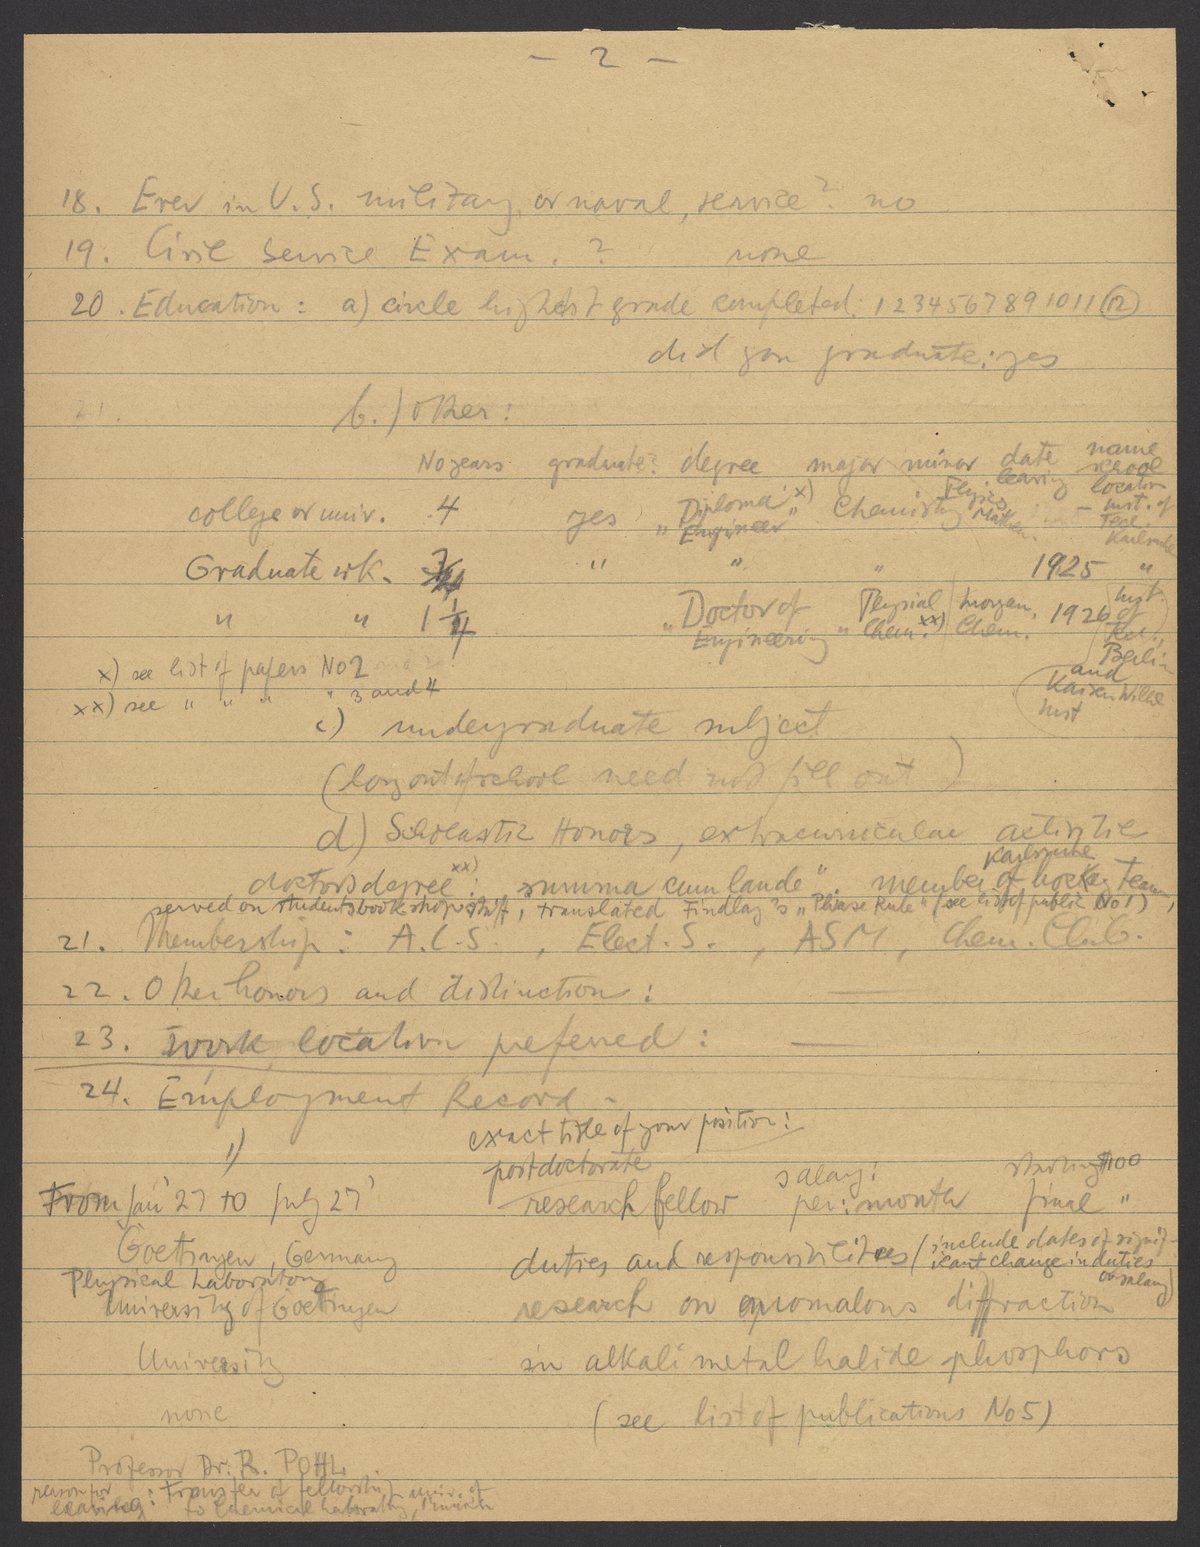 - 2 -
18. Ever in U.S. military, or naval, service? no
19. Civil Service Exam. ? none
20. Education: a) circle highest grade completed: 1 2 3 4 5 6 7 8 9 10 11 12
did you graduate: yes
21. b.) other:
No years graduate? degree major minor date leaving name school location
college or univ. 4 yes "Diploma x) Engineer" Chemistry Physics Mathem. — Inst. of Tech. Karlsruhe
Graduate wk. 3/4 " " " 1925 "
" " 1 1/4 "Doctor of Engineering" Physical Chem. xx) Inorgan. Chem. 1926 (Inst. of Tech. Berlin
and Kaiser Wilhel Inst
x) see list of papers No 2
xx) see " " " " 3 and 4
c) undergraduate subject
(long out of school need not fill out)
d) Scholastic Honors, extracurricular activitie
doctors degree xx): "summa cum laude". member of Karlsruhe hockey team,
served on students bookshop staff, translated Findlay's "Phase Rule" (see list of public No 1)
21. Membership: A.C.S., Elect. S., ASM, Chem. Club.
22. Other honors and distinction: —
23. Work location preferred: —
24. Employment Record -
1) exact title of your position:
postdoctorate
From Jan' 27 to July 27' research fellow salary: per: month starting $100 final "
Goettingen, Germany duties and responsibilities (include dates of signif-
icant change in duties or salary)
Physical Laboratory
University of Goettingen research on anomalous diffraction
University in alkali metal halide phosphors
none (see list of publications No 5)
Professor Dr. R. POHL.
reason for leaving: Transfer of fellowship univ. of
to Chemical Laboratory, Munich